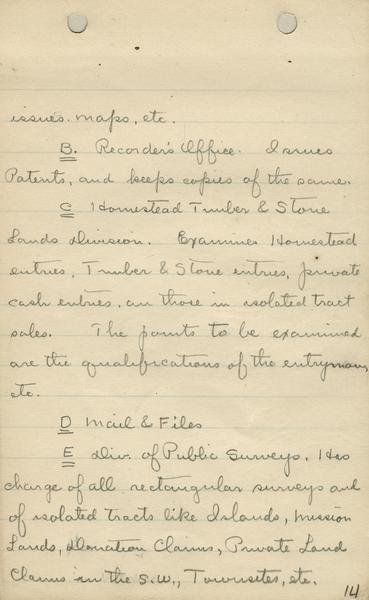 issues maps, etc.
B. Recorder's Office. Issues
Patents, and keeps copies of the same.
C Homestead Timber & Stone
Lands Division. Examines Homestead
entries, Timber & Stone entries, private
cash entries, as those in isolated tract
sales. The points to be examined
are the qualifications of the entryman,
etc.
D Mail & Files
E Div. of Public Surveys. Has
charge of all rectangular surveys and
of isolated tracts like Islands, Mission
Lands, Donation Claims, Private Land
Claims in the S.W., Townsites, etc.
14